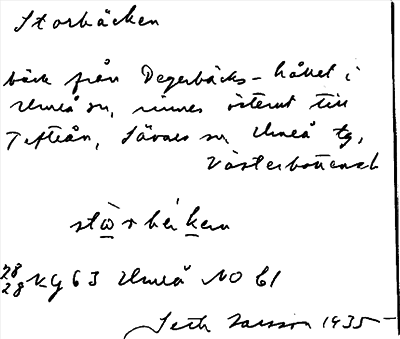 Storbäcken
bäck från Degerbäcks-hållet i
Umeå sn, rinner österut till
Tefteån, Sävars sn, Umeå tg,
Västerbottens l
28 VG 63 Umeå NO 61
1935